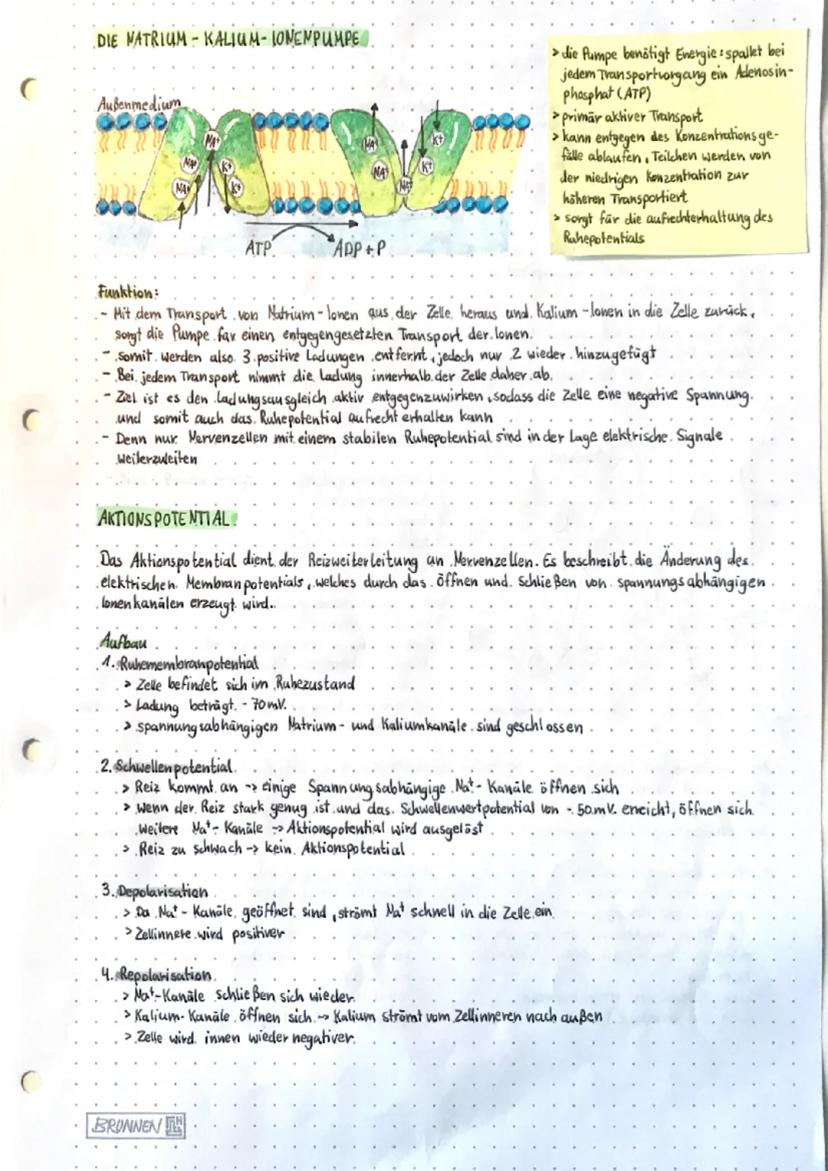 DIE NATRIUM - KALIUM - IONENPUMPE
Außenmedium
NA+
NA+
NA+
K+
K+
NA+
NA+
NA+
K+
K+
ATP
ADP + P
> die Pumpe benötigt Energie: spaltet bei
jedem Transportvorgang ein Adenosin-
phosphat (ATP)
> primär aktiver Transport
> kann entgegen des Konzentrationsge-
fälle ablaufen, Teilchen werden von
der niedrigen Konzentration zur
höheren Transportiert
> sorgt für die aufrechterhaltung des
Ruhepotentials
Funktion:
- Mit dem Transport von Natrium-Ionen aus der Zelle heraus und Kalium-Ionen in die Zelle zurück,
sorgt die Pumpe für einen entgegengesetzten Transport der Ionen.
- somit werden also 3 positive Ladungen entfernt, jedoch nur 2 wieder hinzugefügt
- Bei jedem Transport nimmt die Ladung innerhalb der Zelle daher ab.
- Ziel ist es den Ladungsausgleich aktiv entgegenzuwirken, sodass die Zelle eine negative Spannung
und somit auch das Ruhepotential aufrecht erhalten kann
- Denn nur Nervenzellen mit einem stabilen Ruhepotential sind in der Lage elektrische Signale
weiterzuleiten
AKTIONSPOTENTIAL
Das Aktionspotential dient der Reizweiterleitung an Nervenzellen. Es beschreibt die Änderung des
elektrischen Membranpotentials, welches durch das öffnen und schließen von spannungsabhängigen
Ionenkanälen erzeugt wird.
Aufbau
1. Ruhemembranpotential
> Zelle befindet sich im Ruhezustand
> Ladung beträgt - 70mV
> spannungsabhängigen Natrium- und Kaliumkanäle sind geschlossen
2. Schwellenpotential
> Reiz kommt an -> einige Spannungsabhängige Na+- Kanäle öffnen sich
> wenn der Reiz stark genug ist und das Schwellenwertpotential von - 50mV erreicht, öffnen sich
weitere Na+- Kanäle -> Aktionspotential wird ausgelöst
> Reiz zu schwach -> kein Aktionspotential
3. Depolarisation
> Da Na+- Kanäle geöffnet sind, strömt Na+ schnell in die Zelle ein
> Zellinnere wird positiver
4. Repolarisation
> Na+-Kanäle schließen sich wieder
> Kalium-Kanäle öffnen sich -> Kalium strömt vom Zellinneren nach außen
> Zelle wird innen wieder negativer
BRUNNEN